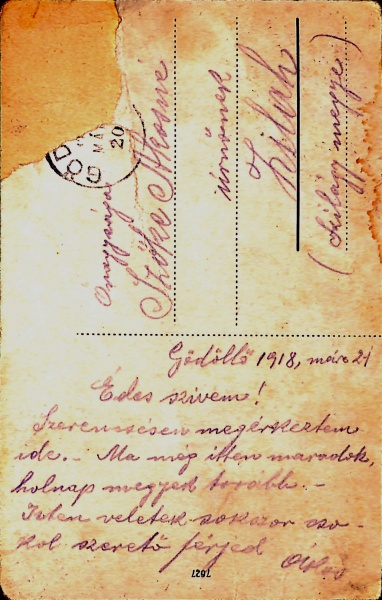 Őnagysága
Szőke Ákosné
úrnőnek
Zilah
(Szilágy megye)
MÁ
20
Gödöllő 1918, márc 21
Édes szivem!
Szerencsésen megérkeztem
ide. - Ma még itten maradok,
holnap megyek tovább. -
Isten veletek sokszor cso-
kol szerető férjed
Ákos
7627